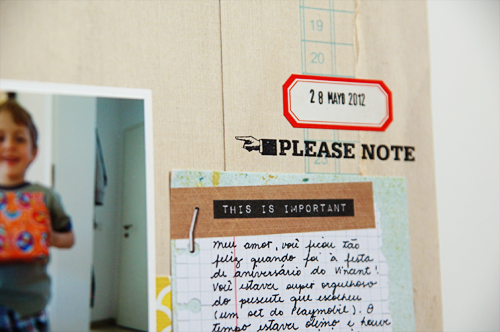 19
20
28 MAYO 2012
PLEASE NOTE
23
THIS IS IMPORTANT
Meu amor, você ficou tão
feliz quando foi à festa
de aniversário do Vincent!
Você estava super orgulhoso
do presente que escolheu
(um set do Playmobil). O
tempo estava ótimo e houve